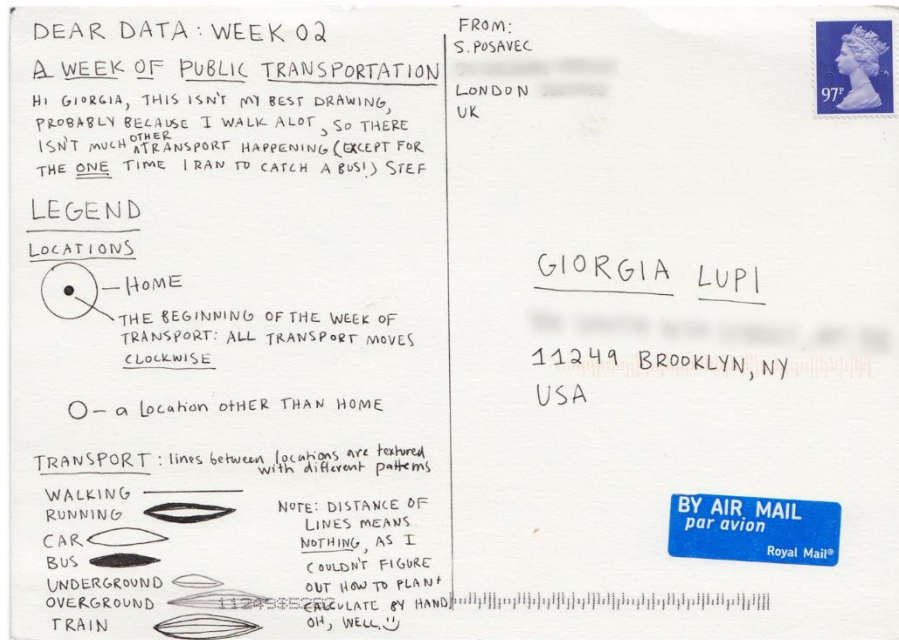 DEAR DATA: WEEK 02
A WEEK OF PUBLIC TRANSPORTATION
HI GIORGIA, THIS ISN'T MY BEST DRAWING,
PROBABLY BECAUSE I WALK ALOT, SO THERE
ISN'T MUCH OTHER TRANSPORT HAPPENING (EXCEPT FOR
THE ONE TIME I RAN TO CATCH A BUS!) STEF
LEGEND
LOCATIONS
HOME
THE BEGINNING OF THE WEEK OF
TRANSPORT: ALL TRANSPORT MOVES
CLOCKWISE
a Location OTHER THAN HOME
TRANSPORT: lines between locations are textured
with different patterns
WALKING
RUNNING
CAR
BUS
UNDERGROUND
OVERGROUND
TRAIN
NOTE: DISTANCE OF
LINES MEANS
NOTHING, AS I
COULDN'T FIGURE
OUT HOW TO PLAN+
CALCULATE BY HAND
OH, WELL.
FROM:
S.POSAVEC
LONDON
UK
97P
GIORGIA LUPI
11249 BROOKLYN, NY
USA
BY AIR MAIL
par avion
Royal Mail®